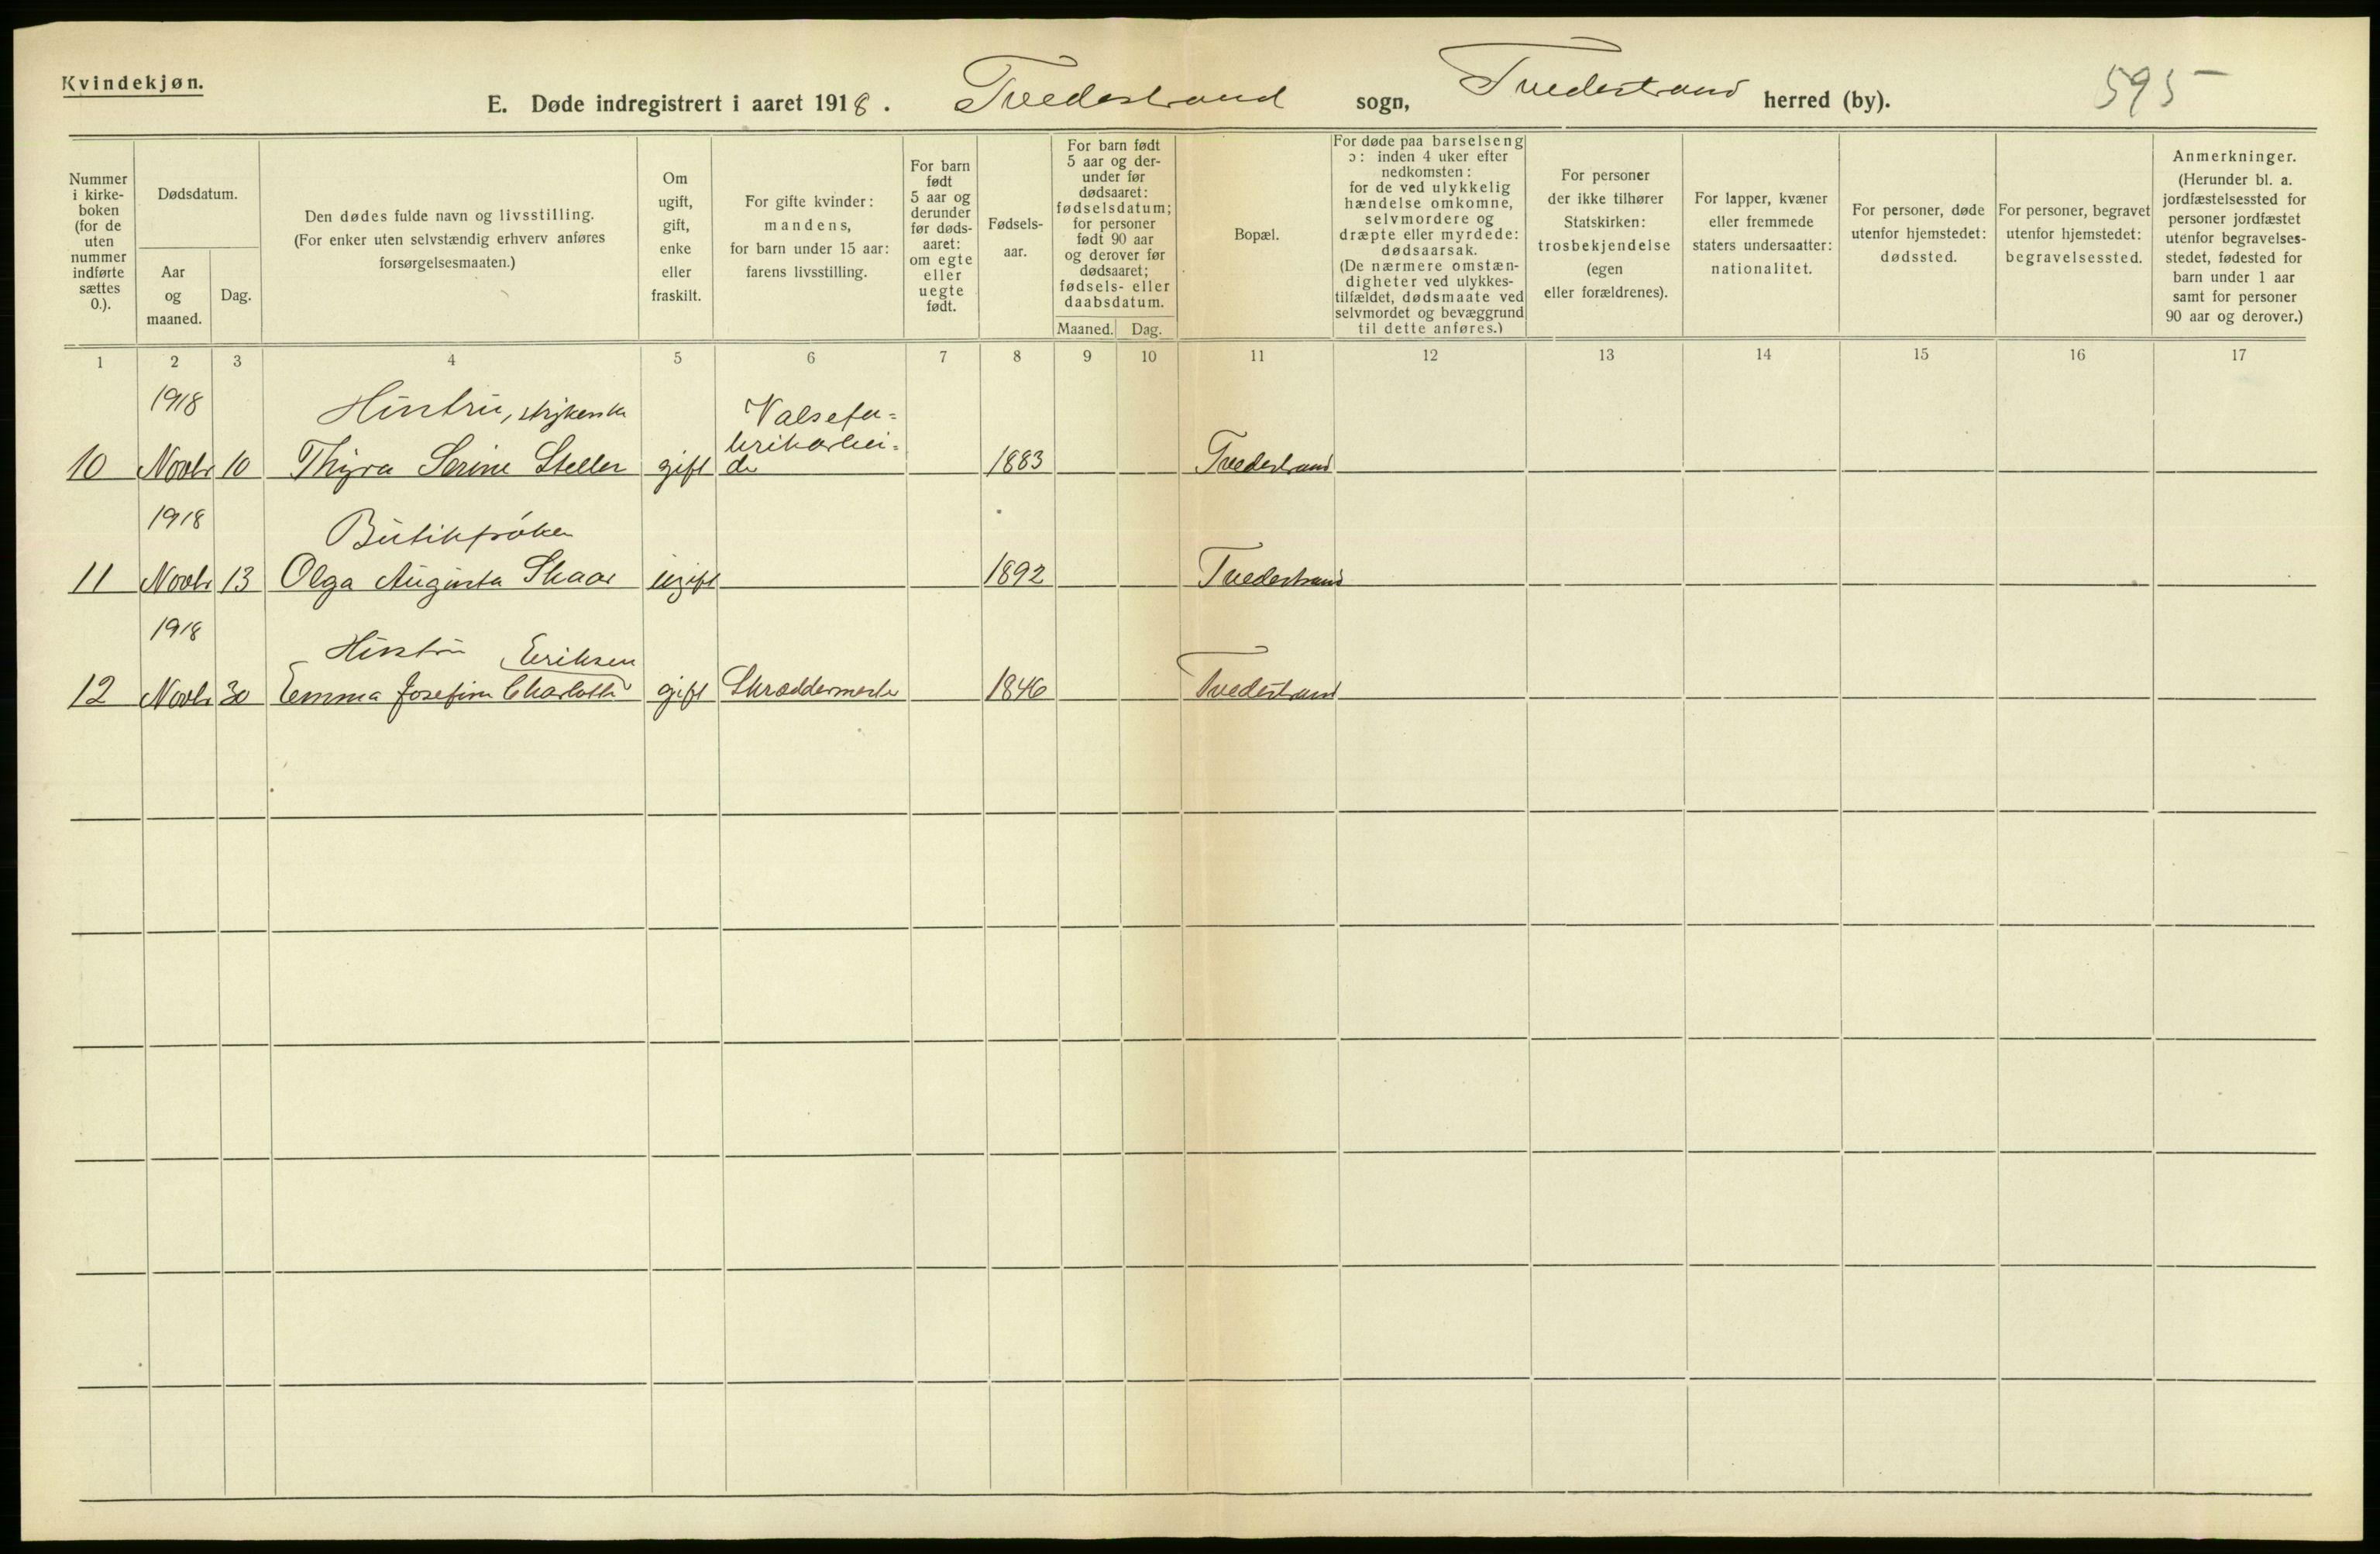 Kvindekjøn.
E. Døde indregistrert i aaret 1918. Tvedestrand sogn, Tvedestrand herred (by).
595
Nummer i kirke-boken (for de uten nummer indførte sættes 0.).
Dødsdatum.
Aar og maaned.
Dag.
Den dødes fulde navn og livsstilling.
(For enker uten selvstændig erhverv anføres
forsørgelsesmaaten.)
Om ugift, gift, enke eller fraskilt.
For gifte kvinder:
mandens,
for barn under 15 aar:
farens livsstilling.
For barn født 5 aar og derunder før døds-aaret: om egte eller uegte født.
Fødsels-aar.
For barn født 5 aar og der-under før dødsaaret: fødselsdatum; for personer født 90 aar og derover før dødsaaret; fødsels- eller daabsdatum.
Maaned.
Dag.
Bopæl.
For døde paa barselseng
ɔ: inden 4 uker efter
nedkomsten:
for de ved ulykkelig
hændelse omkomne,
selvmordere og
dræpte eller myrdede:
dødsaarsak.
(De nærmere omstæn-
digheter ved ulykkes-
tilfældet, dødsmaate ved
selvmordet og bevæggrund
til dette anføres.)
For personer
der ikke tilhører
Statskirken:
trosbekjendelse
(egen
eller forældrenes).
For lapper, kvæner
eller fremmede
staters undersaatter:
nationalitet.
For personer, døde
utenfor hjemstedet:
dødssted.
For personer, begravet
utenfor hjemstedet:
begravelsessted.
Anmerkninger.
(Herunder bl. a.
jordfæstelsessted for
personer jordfæstet
utenfor begravelses-
stedet, fødested for
barn under 1 aar
samt for personer
90 aar og derover.)
1 2 3 4 5 6 7 8 9 10 11 12 13 14 15 16 17
1918 Hustru, strykerske Valsefa=
brikarbei=
10 Novbr 10 Thyra Serine Steller gift de 1883 Tvedestrand
1918 Butikfrøken
11 Novbr 13 Olga Augusta Skaar ugift 1892 Tvedestrand
1918 Hustru Eriksen
12 Novbr 30 Emma Josefine Charlotte gift Skræddermester 1846 Tvedestrand